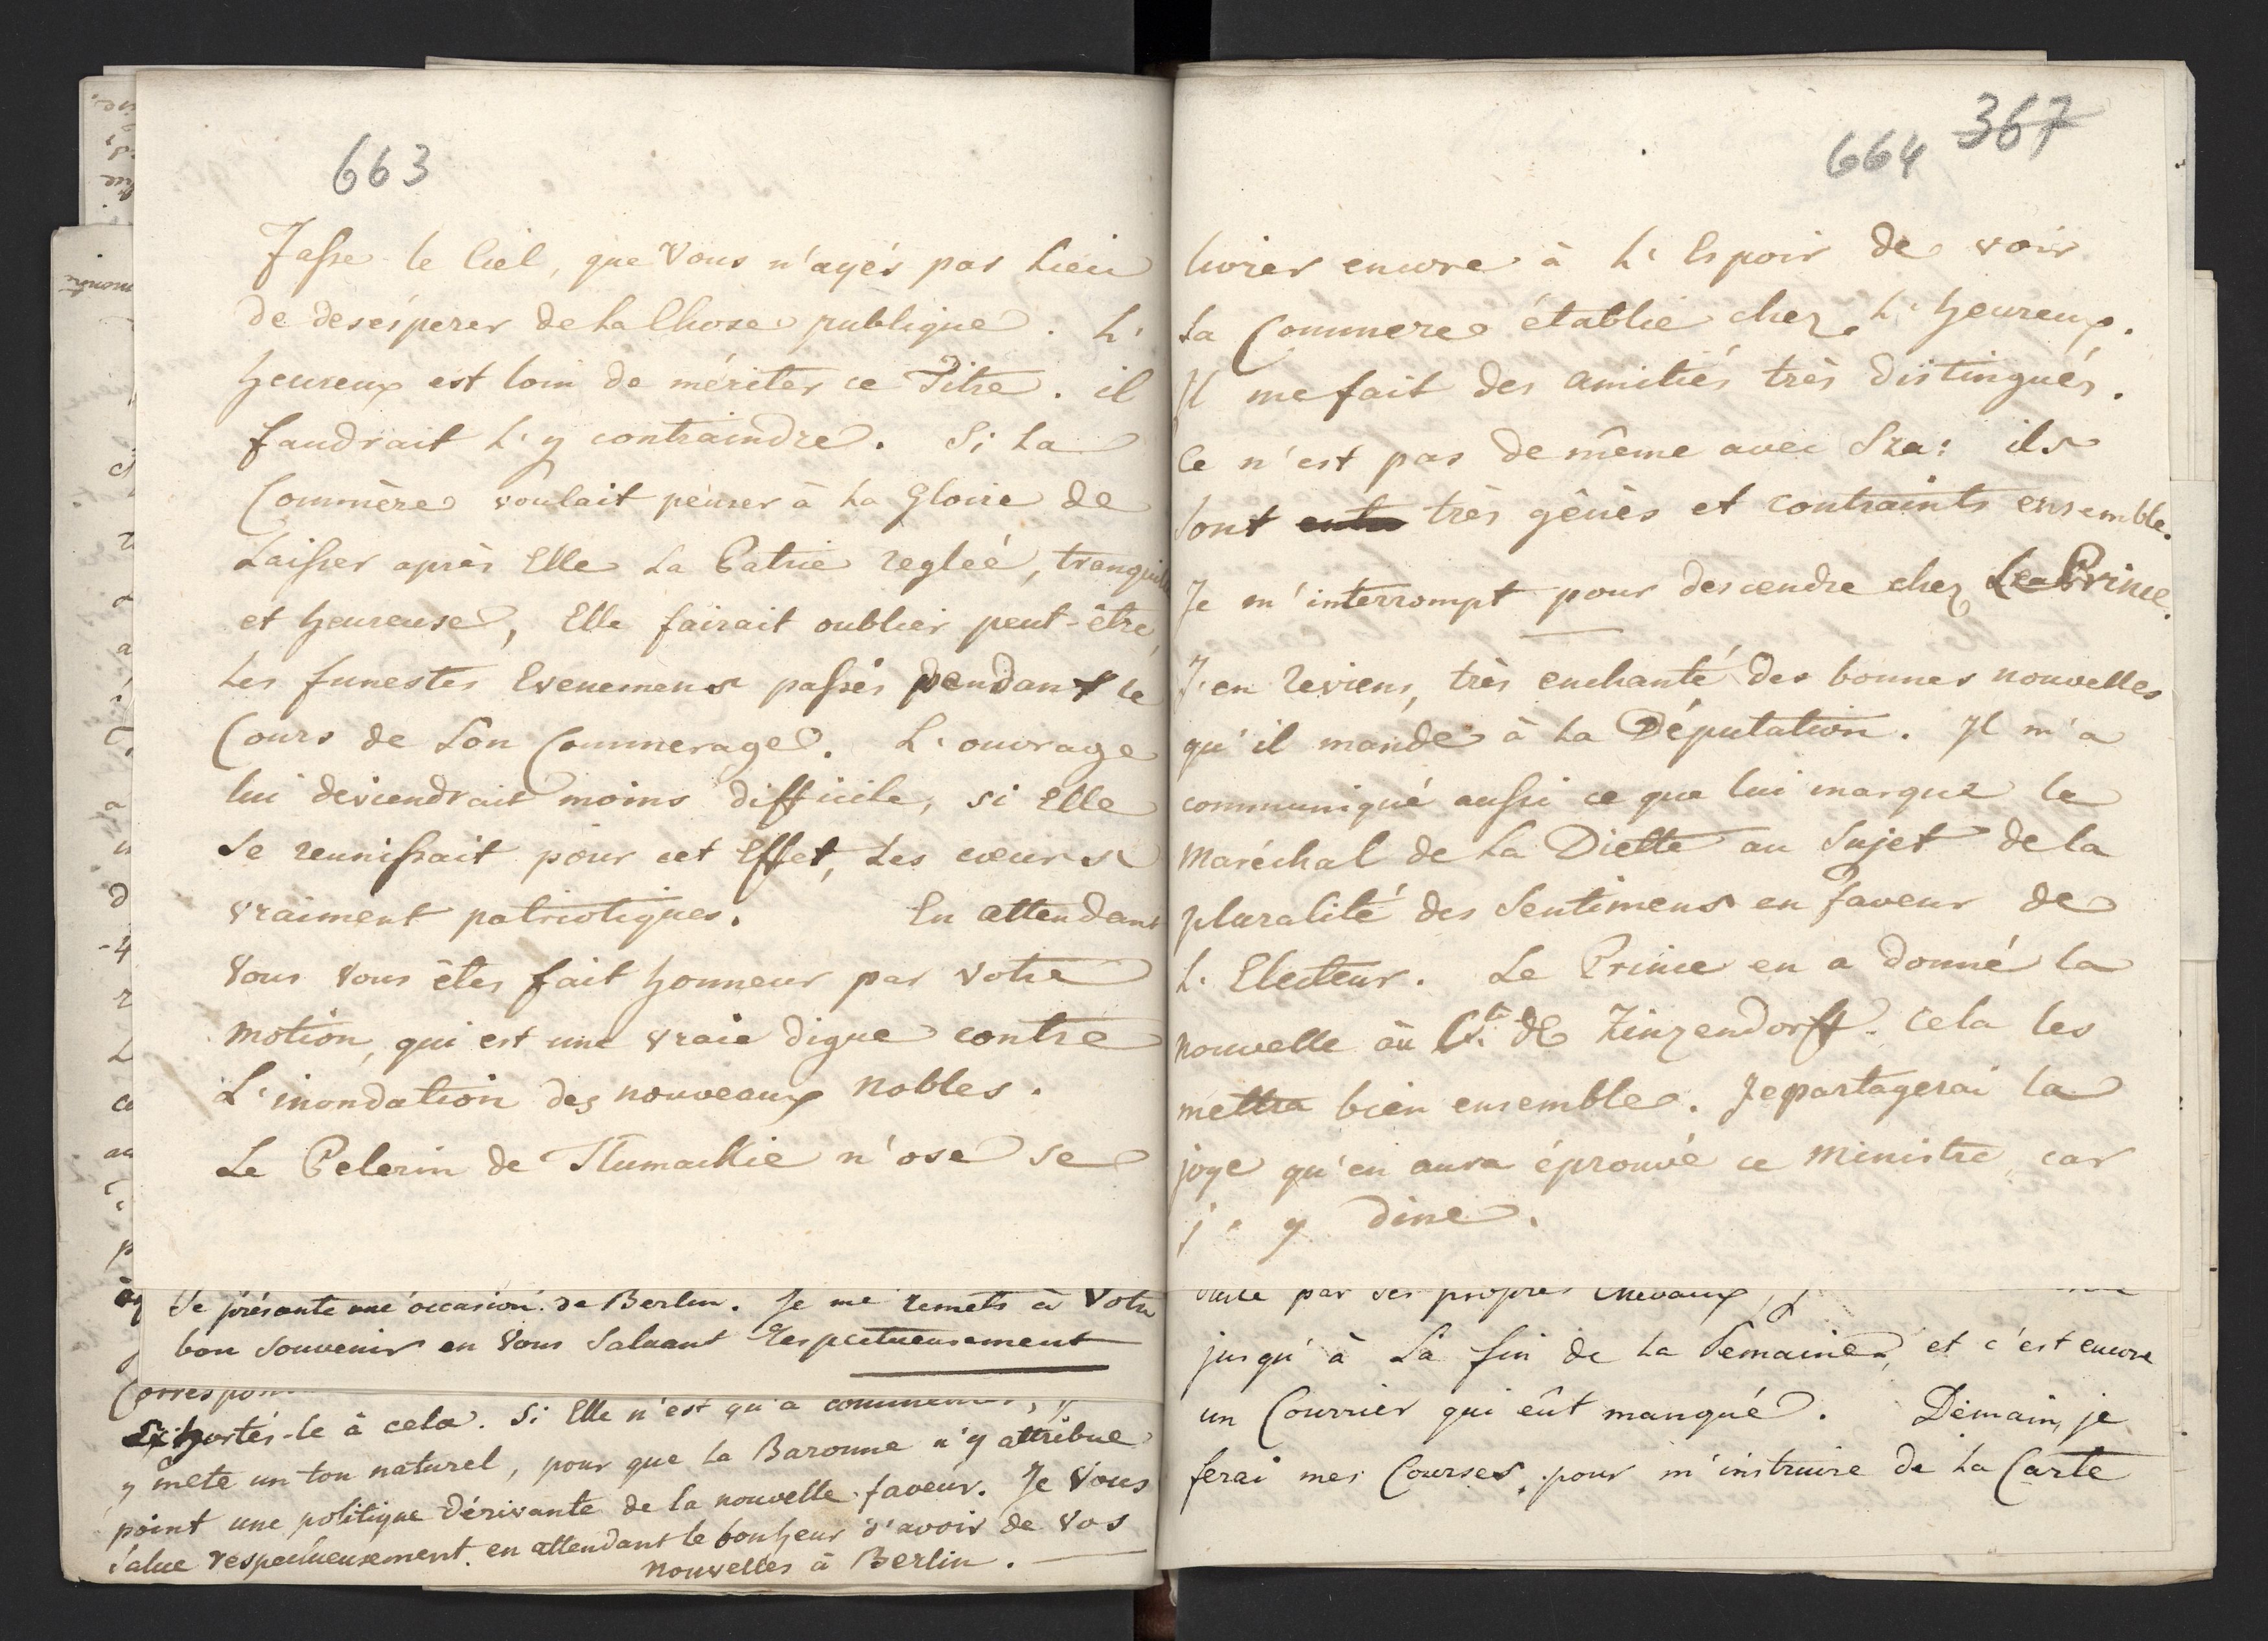 663
Fasse le Ciel, que Vous n'ayés pas Lieu
de desésperer de La Chose publique. L'
heureux est loin de mériter ce Titre. il
faudrait L'y contraindre. Si La
Commère voulait penser à La Gloire de
Laisser après Elle La Patrie regleé, tranquille
et heureuse, Elle fairait oublier peut-être,
Les funestes Evenemens passés pendant le
Cours de Son Commerage. L'ouvrage
lui deviendrait moins difficile, si Elle
Se reunissait pour cet Effet, Les cœurs
vraiment patriotiques. En attendant
Vous Vous êtes fait honneur par Votre
motion, qui est une vraie digue contre
L'inondation des nouveaux nobles.
Le Pelerin de Tlumackie n'ose se
Se présente une occasion de Berlin. Je me remets à Votre
bon Souvenir en Vous Saluant Respectueusement
Exhortés-le à cela. Si Elle n'est qu'a
y mete un ton naturel, pour que La Baronne n'y attribue
point une politique dérivante de la nouvelle faveur. Je Vous
salue respectueusement. en attendant le bonheur d'avoir de Vos
nouvelles à Berlin.
664 367
livrer encore à L'Espoir de voir
La Commere établie chez L'heureux.
Il me fait des amitiés très distingués.
Ce n'est pas de même avec Sza: ils
Sont très gênés et contraints ensemble.
Je m'interrompt pour descendre chez Le Prince.
J'en reviens, très enchanté des bonnes nouvelles
qu'il mande à La Députation. Il m'a
communiqué aussi ce que lui marque le
Maréchal de La Diette au Sujet de la
pluralité des Sentimens en faveur de
L'Electeur. Le Prince en a donné la
nouvelle au Cte de Zinzendorff. Cela les
mettra bien ensemble. Je partagerai la
joye qu'en aura éprouvé ce Ministre, car
j'y dine.
par ses propres Chevaux,
jusqu'à La fin de La Semaine, et c'est encore
un Courrier qui eût manqué. Demain, je
ferai mes Courses, pour m'instruire de La Carte